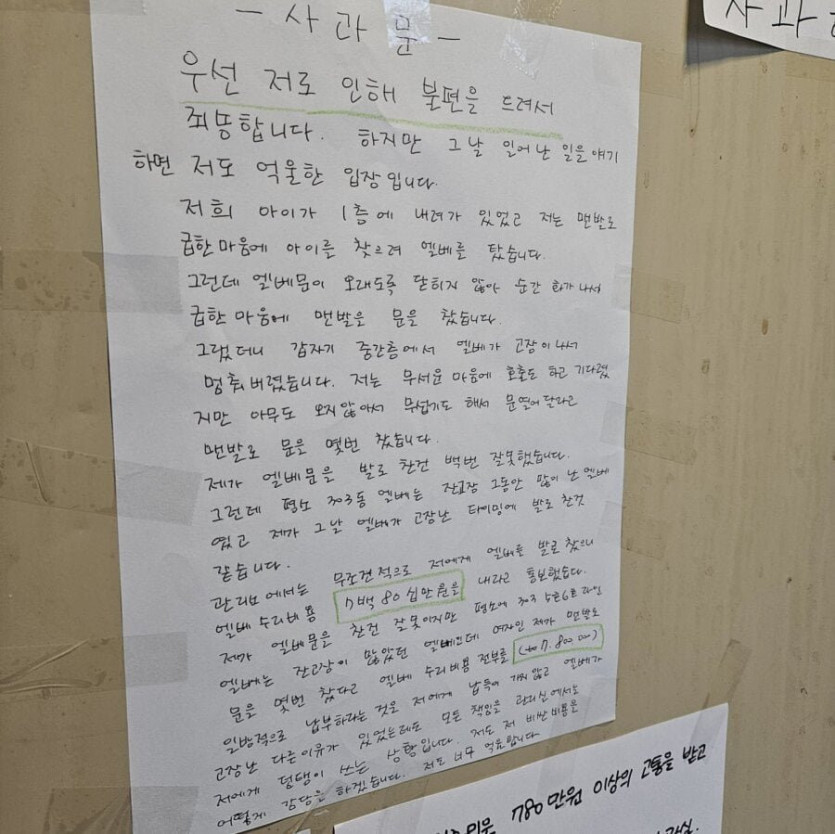 - 사 과 문 -
우선 저로 인해 불편을 드려서
죄송합니다. 하지만 그날 일어난 일을 얘기
하면 저도 억울한 입장입니다.
저희 아이가 1층에 내려가 있었고 저는 맨발로
급한마음에 아이를 찾으려 엘베를 탔습니다.
그런데 엘베문이 오래도록 닫히지 않아 순간 화가나서
급한마음에 맨발을 문을 찼습니다.
그랬더니 갑자기 중간층에서 엘베가 고장이나서
멈춰버렸습니다. 저는 무서운 마음에 호출도 하고 기다렸
지만 아무도 오지않아서 무섭기도 해서 문열어달라고
맨발로 문을 몇번 찼습니다.
제가 엘베문을 발로 찬건 백번 잘못했습니다.
그런데 평소 303동 엘베는 잔고장 그동안 많이 난 엘베
였고 제가 그날 엘베가 고장난 타이밍에 발로 찬것
같습니다.
관리소에서는 무조건적으로 저에게 엘베를 발로 찼으니
엘베 수리비용 7백80십만원을 내라고 통보했습니다.
제가 엘베문을 찬건 잘못이지만 평소에 303 5호6호라인
엘베는 잔고장이 많았던 엘베인데 여자인 제가 맨발로
문을 몇번 찼다고 엘베 수리비용 전부를 (₩7.800.000)
일방적으로 납부하라는것은 저에게 납득이 가지않고 엘베가
고장난 다른이유가 있었는데도 모든 책임을 관리실에서는
저에게 덤탱이 쓰는 상황입니다. 저도 저 비싼비용을
어떻게 감당을 하겠습니다. 저도 너무 억울합니다
사과
780만원 이상의 고통을 받고